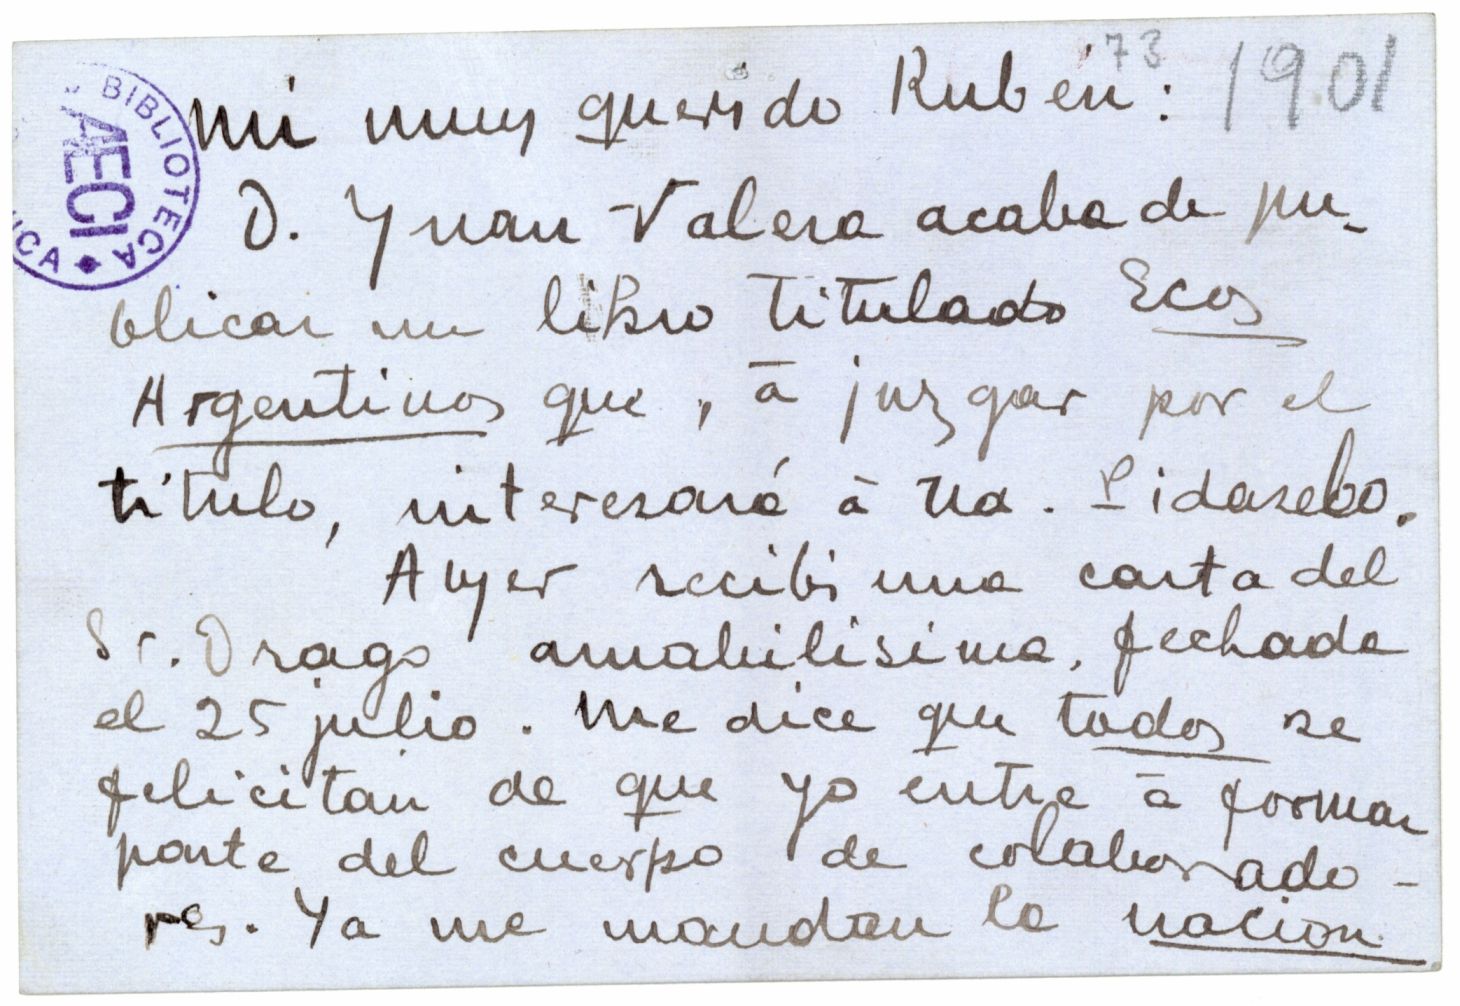 73
1901
BIBLIOTECA
AECI
ICA
Mi muy querido Rubén:
D. Juan Valera acaba de pu-
blicar un libro titulado Ecos
Argentinos que, á juzgar por el
título, interesará á Ud. Pidaselo.
Ayer recibi una carta del
Sr. Drago amabilisima, fechada
el 25 julio. Me dice que todos se
felicitan de que yo entre á formar
parte del cuerpo de colaborado-
res. Ya me mandan la nacion